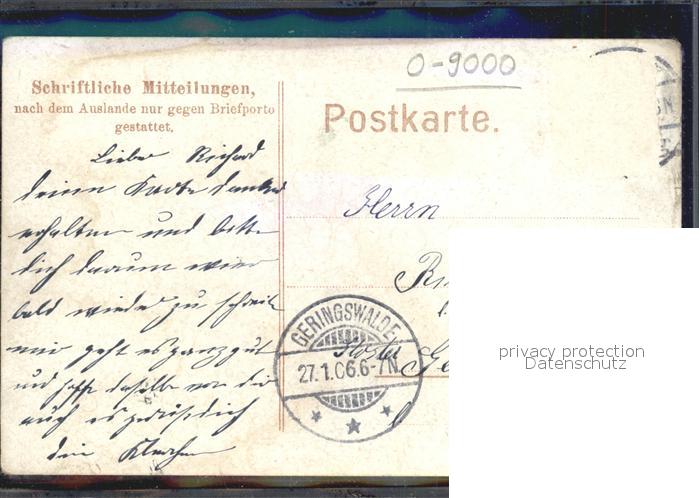 O-9000
Schriftliche Mitteilungen,
nach dem Auslande nur gegen Briefporto
gestattet.
Postkarte.
Lieber Richard
deine Karte dankend
erhalten und bitte
dich darum mir
bald wieder zu schreiben
mir geht es ganz gut
und hoffe dasselbe von dir
auch
dein
Herrn
GERINGSWALDE
27.1.06.6-7N.
Ge
privacy protection
Datenschutz